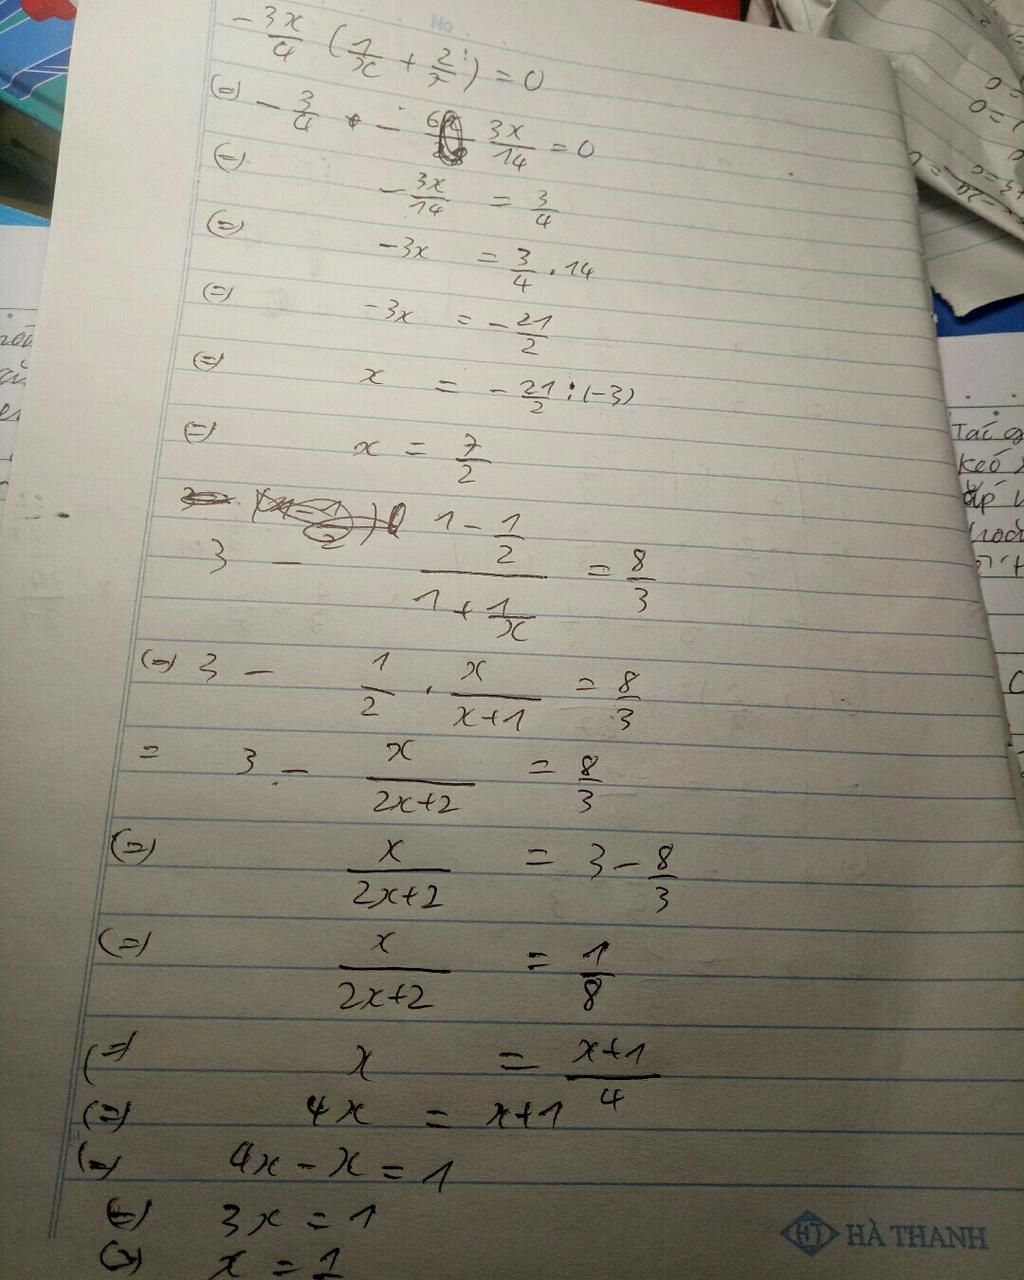 No
-3x/4 (1/x + 2/7) = 0
(=) -3/4 - 3x/14 = 0
(=) -3x/14 = 3/4
(=) -3x = 3/4 . 14
(=) -3x = -21/2
(=) x = -21/2 : (-3)
(=) x = 7/2
3 - (1 - 1/2)/(1 + 1/x) = 8/3
(=) 3 - 1/2 . x/(x+1) = 8/3
= 3 - x/(2x+2) = 8/3
(=) x/(2x+2) = 3 - 8/3
(=) x/(2x+2) = 1/8
(=) x = (x+1)/4
(=) 4x = x+1
(=) 4x - x = 1
(=) 3x = 1
(=) x = 1
HT HÀ THANH